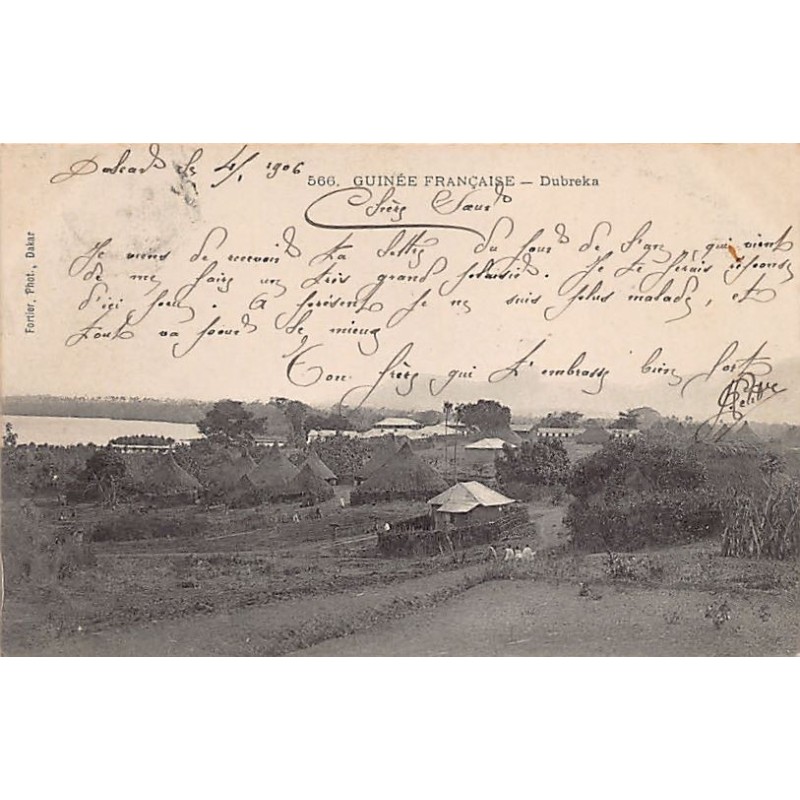 Dakar le 4/1 1906
566. GUINÉE FRANÇAISE — Dubreka
Chère Sœur
Je viens de recevoir ta lettre du jour de l'an, qui vient
de me faire un très grand plaisir. Je te ferais réponse
d'ici peu. A présent je ne suis plus malade, et
tout va pour le mieux
Ton frère qui t'embrasse bien fort
Fortier, Phot., Dakar